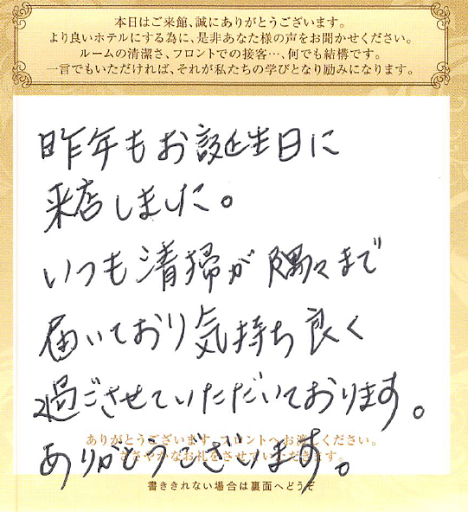 本日はご来館、誠にありがとうございます。
より良いホテルにする為に、是非あなた様の声をお聞かせください。
ルームの清潔さ、フロントでの接客…、何でも結構です。
一言でもいただければ、それが私たちの学びとなり励みになります。
昨年もお誕生日に
来店しました。
いつも清掃が隅々まで
届いており気持ち良く
過ごさせていただいております。
ありがとうございます。フロントへお渡しください。
ささやかなお礼をさせていただきます。
ありがとうございます。
書ききれない場合は裏面へどうぞ